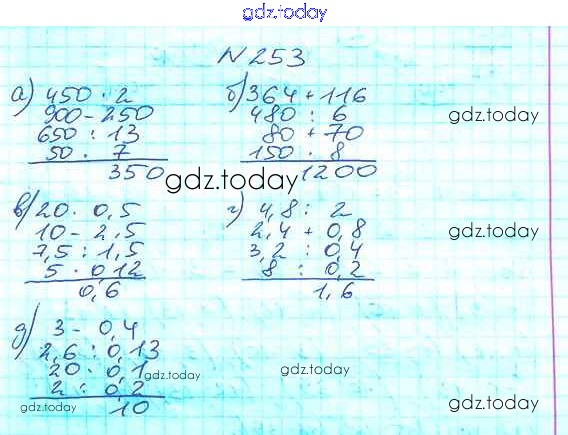 gdz.today
N 253
а) 450 · 2
900 - 250
650 : 13
50 · 7
350
б) 364 + 116
480 : 6
80 + 70
150 · 8
1200
gdz.today
gdz.today
в) 20 · 0,5
10 - 2,5
7,5 : 1,5
5 · 0,12
0,6
г) 4,8 : 2
2,4 + 0,8
3,2 : 0,4
8 : 0,2
1,6
gdz.today
д) 3 - 0,4
2,6 : 0,13
20 · 0,1
2 : 0,2
10
gdz.today
gdz.today
gdz.today
gdz.today